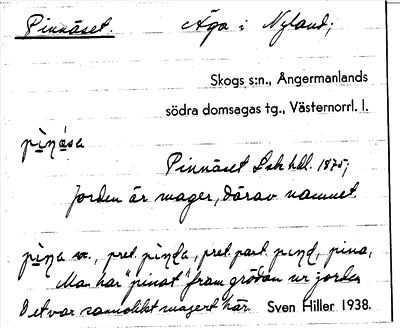 Pinnäset. Äga i Nyland;
Skogs s:n., Ångermanlands
södra domsagas tg., Västernorrl. l.
pìnä́sa
Pinnäset Lsk hdl. 1875;
Jorden är mager, därav namnet
pìna v., pret. pìnda, pret. part. pind, pina,
Man har "pinat" fram grödan ur jorden
Det var sannolikt magert här. Sven Hiller 1938.